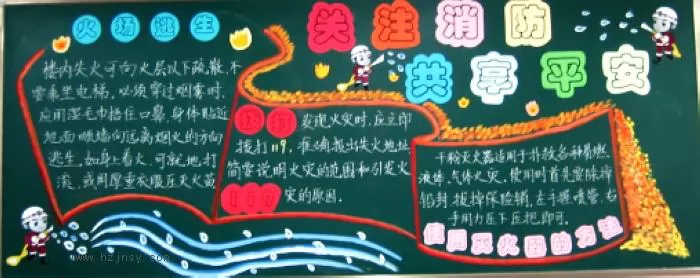 火场逃生
关注消防
共享平安
楼内失火可向火层以下疏散,不
要乘坐电梯,必须穿过烟雾时,
应用湿毛巾捂住口鼻,身体贴近
地面顺墙向远离烟火的方向
逃生,如身上着火,可就地打
滚,或用厚重衣物压灭火苗
发现火灾时,应立即
拨打119,准确报出失火地址
简要说明火灾的范围和引发火
灾的原因.
119
干粉灭火器适用于扑救各种易燃
液体,气体火灾,使用时首先要除掉
铅封,拔掉保险销,左手握喷管,右
手用力压下压把即可.
使用灭火器的方法
www.hzjnsy.com